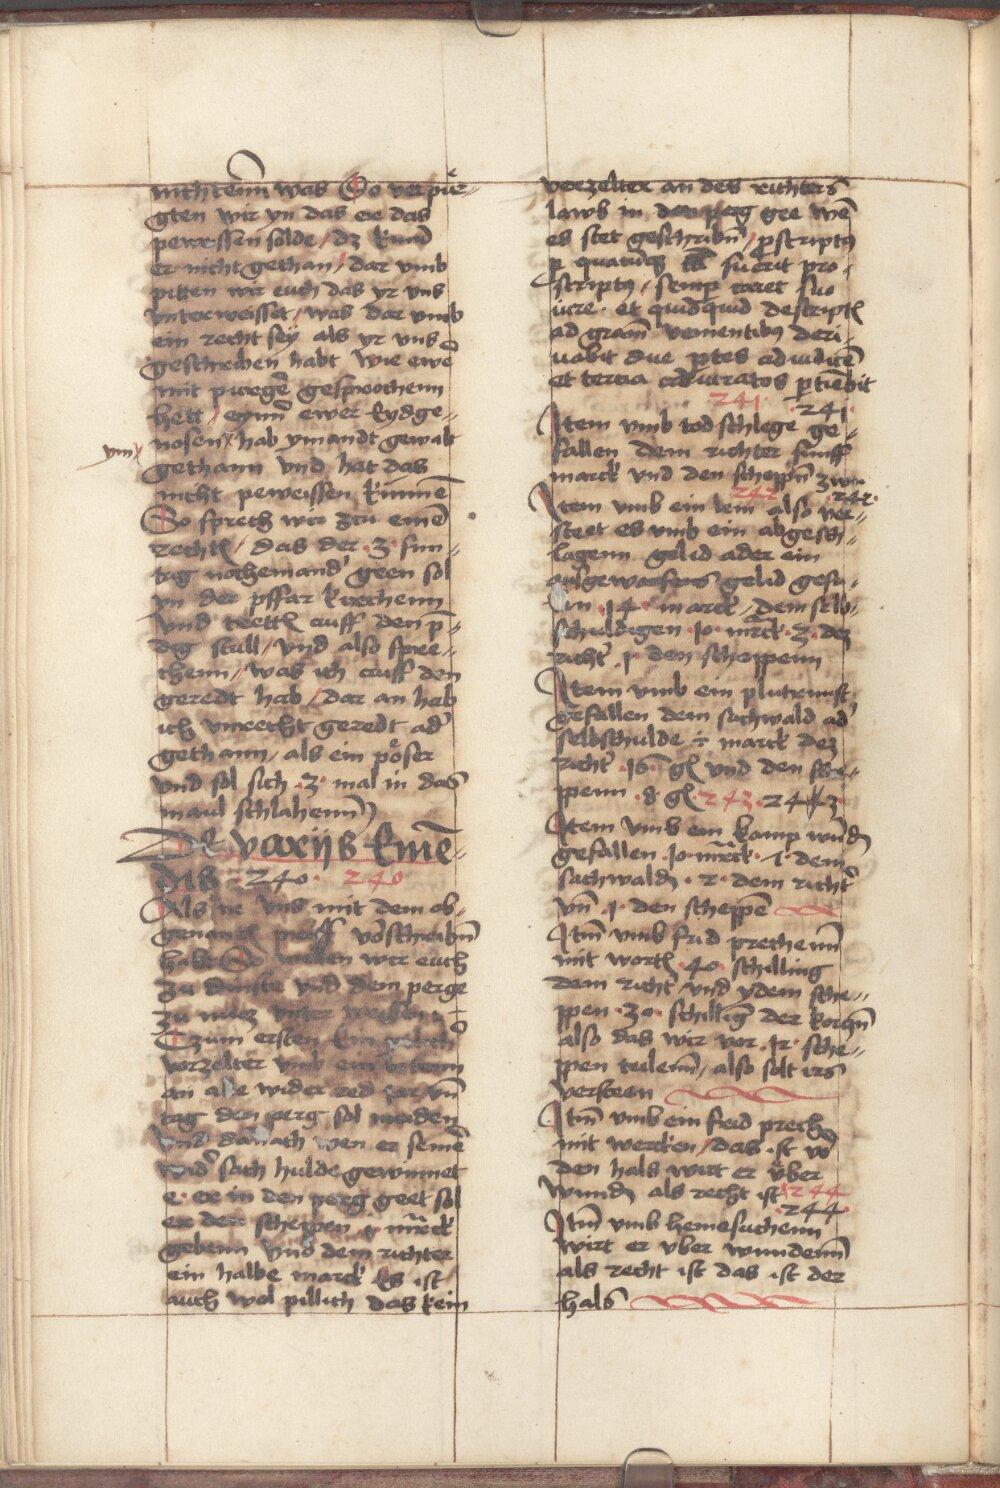 nichtenn was So verpür-
gten wir yn das er das
peweissen solde / dz kund
er nicht gethan / dar vmb
pitten wir euch das yr vns
vnterweisset / was dar vmb
ein recht sey als yr vns
geschreiben habt wie ewr̄
mit purgē gesprochenn
hett / eynn̄ ewer Eydge-
nosen hab ymandt gewalt
ym
gethann vnd hat das
nicht peweissen kunnē
So sprech wir zcu einē
rechtꝭ / das der 3 sun-
tag nochemand geen sol
yn der pffar kirchenn
vnd trettꝭ auff den p̄-
dig stull / vnd also spre-
chenn / was ich auff den
geredt hab / dar an hab
ich vnrecht geredt ad'
gethann / als ein pöser
und sol sich 3 mal in das
maul schlahenn
De varijs Emē-
dis 240 240
Als ir vns mit dem ob-
genantꝭ prieff v'schreibn̄
habt So wellen wir euch
zu dinste vnd dem perge
zu nucz vnter weissen
Czum ersten Ein
vorzelter vmb ein
an alle wider red jar vn̄
tag den perg sol meiden
vnd danach wen er seinē
wid' sach hulde gewinnet
e er in den perg geet sol
er den scheppen 1 marck
gebenn vnd dem richter
ein halbe marck Es ist
auch wol pillich das kein
verzelter an des richters
lawb in den perg gee wen̄
es stet geschribn̄ / p̄scriptꝯ
p quatuꝫ fuerit pro-
scriptꝯ / semp caret suo
iure et quidquid descriptꝭ
ad gracm̄ venientibꝯ deri-
uabit due ptes ad iudicē
et tercia ad iuratos ptinebit
241 241
Item vmb todschlege ge-
fallen dem richter funff
marck vnd den scheppn̄ zwu
242 242
Item vmb ein lem also ver-
steet es vmb ein abgesch-
lagenn gelid ader ein
ausgeworfens gelid gefa-
len 14 marck / dem selb-
schuldigen 10 mrck 3 dez
richt' 1 den scheppenn
Item vmb ein plutrunst
gefallen dem sachwald ad'
selbschulde marck dez
richt' 16 gꝭ vnd den sche-
ppenn 8 gꝭ 243 243
Item vmb ein kamp wūdn̄
gefallen 10 mrck dem
sachwaldn̄ 2 dem richt'
vn̄ 1 den scheppē
Itm̄ vmb frid prechenn
mit wortꝭ 40 schilling
dem richt' vnd ydem sche-
ppen 30 schillīg der kortzn̄
also das wir vor 12 sche-
ppen teilenn / also solt irs
versteen
Itm̄ vmb ein frid prechn̄
mit wercken / das ist vō
den hals wirt er vber
wundn̄ als recht ist 244
244
Itm̄ vmb hemesuchenn
wirt er vber wundenn
als recht ist das ist der
hals